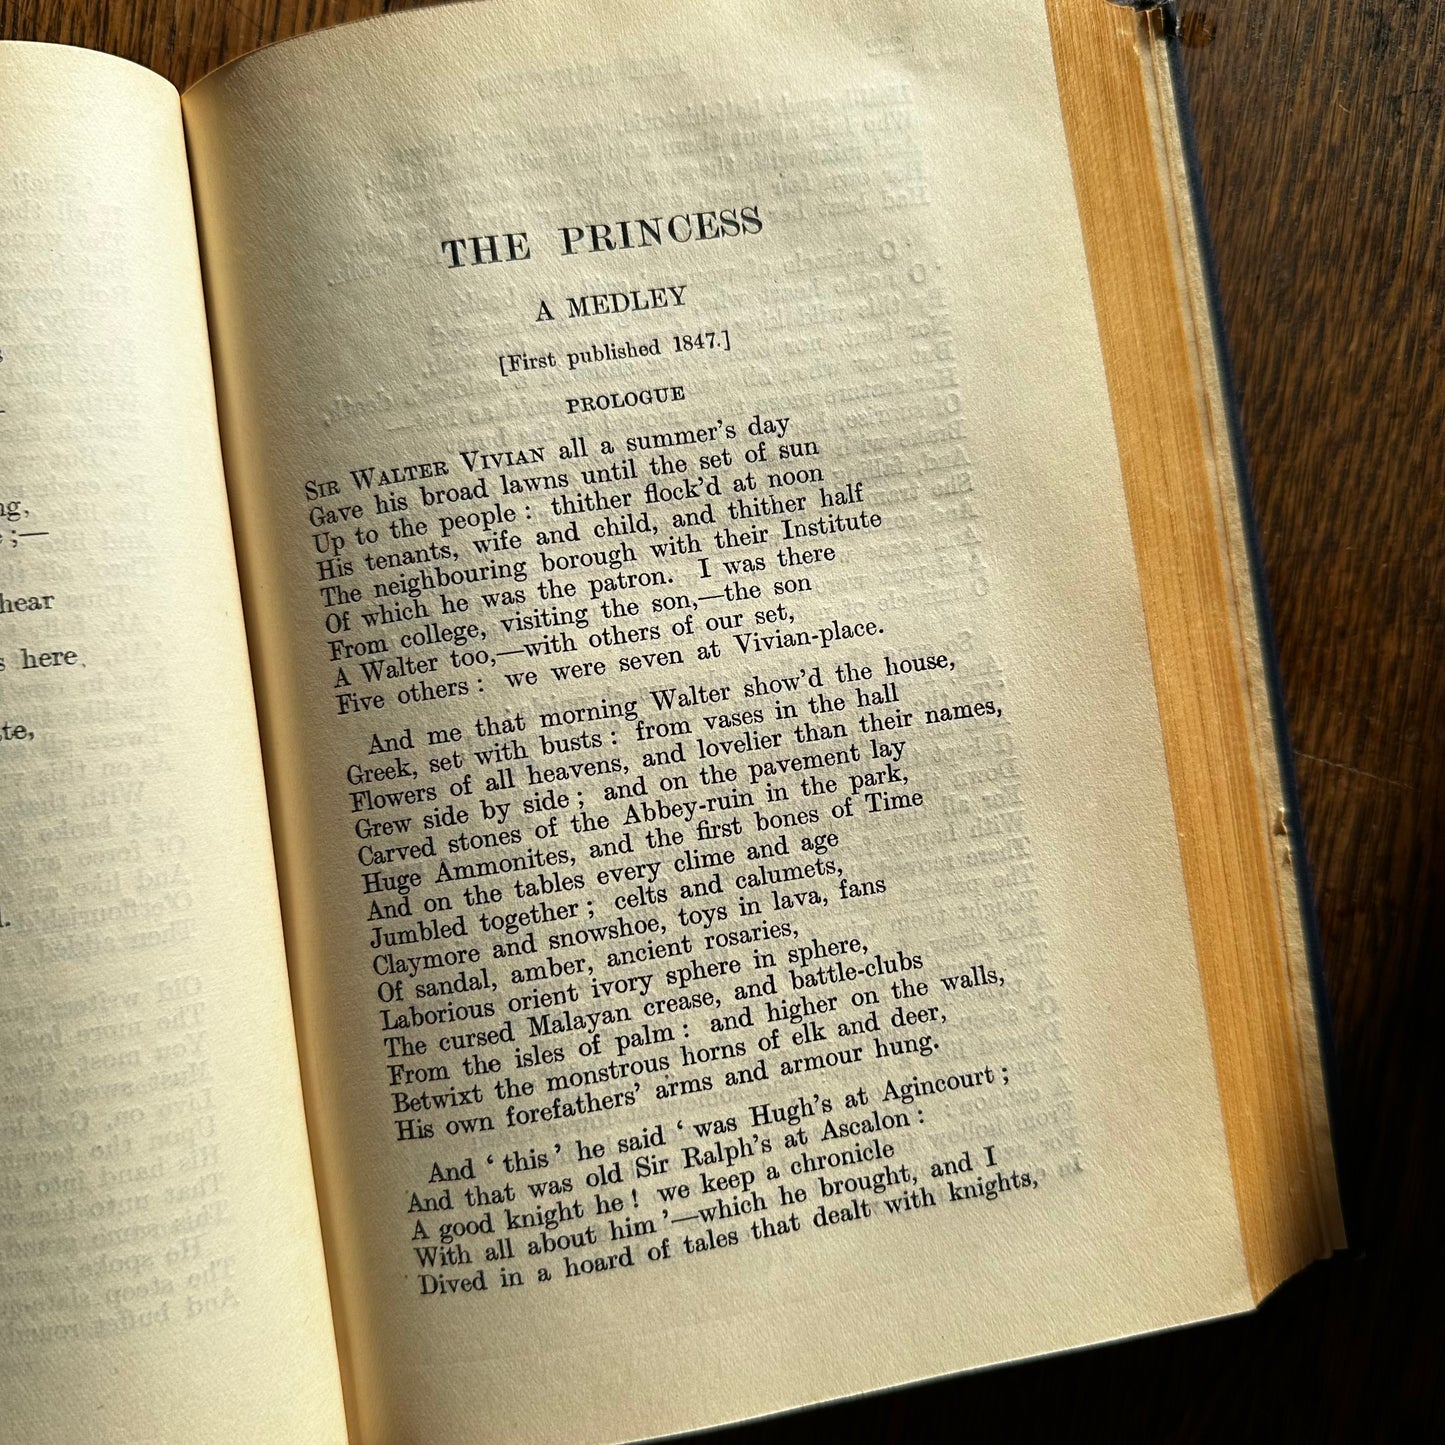 ng,
;—
hear
s here
te,
THE PRINCESS
A MEDLEY
[First published 1847.]
PROLOGUE
SIR WALTER VIVIAN all a summer's day
Gave his broad lawns until the set of sun
Up to the people : thither flock'd at noon
His tenants, wife and child, and thither half
The neighbouring borough with their Institute
Of which he was the patron. I was there
From college, visiting the son,—the son
A Walter too,—with others of our set,
Five others : we were seven at Vivian-place.
And me that morning Walter show'd the house,
Greek, set with busts : from vases in the hall
Flowers of all heavens, and lovelier than their names,
Grew side by side ; and on the pavement lay
Carved stones of the Abbey-ruin in the park,
Huge Ammonites, and the first bones of Time
And on the tables every clime and age
Jumbled together ; celts and calumets,
Claymore and snowshoe, toys in lava, fans
Of sandal, amber, ancient rosaries,
Laborious orient ivory sphere in sphere,
The cursed Malayan crease, and battle-clubs
From the isles of palm : and higher on the walls,
Betwixt the monstrous horns of elk and deer,
His own forefathers' arms and armour hung.
And ‘ this ’ he said ‘ was Hugh's at Agincourt ;
And that was old Sir Ralph's at Ascalon :
A good knight he ! we keep a chronicle
With all about him ’—which he brought, and I
Dived in a hoard of tales that dealt with knights,